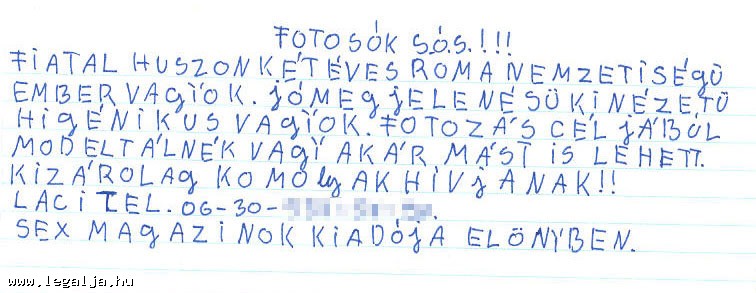 FOTOSÓK S.Ó.S.!!!
FIATAL HUSZONKÉTÉVES ROMA NEMZETISÉGŰ
EMBER VAGÍOK. JÓMEGJELENÉSŰ KINÉZETŰ
HIGÉNIKUS VAGÍOK. FOTOZÁS CÉLJÁBÓL
MODELTÁLNÉK VAGÍ AKÁR MÁST IS LEHETT.
KIZÁROLAG KOMOlyAK HIVJANAK!!
LACI TEL. 06-30-
SEX MAGAZINOK KIADÓJA ELŐNYBEN.
www.legalja.hu